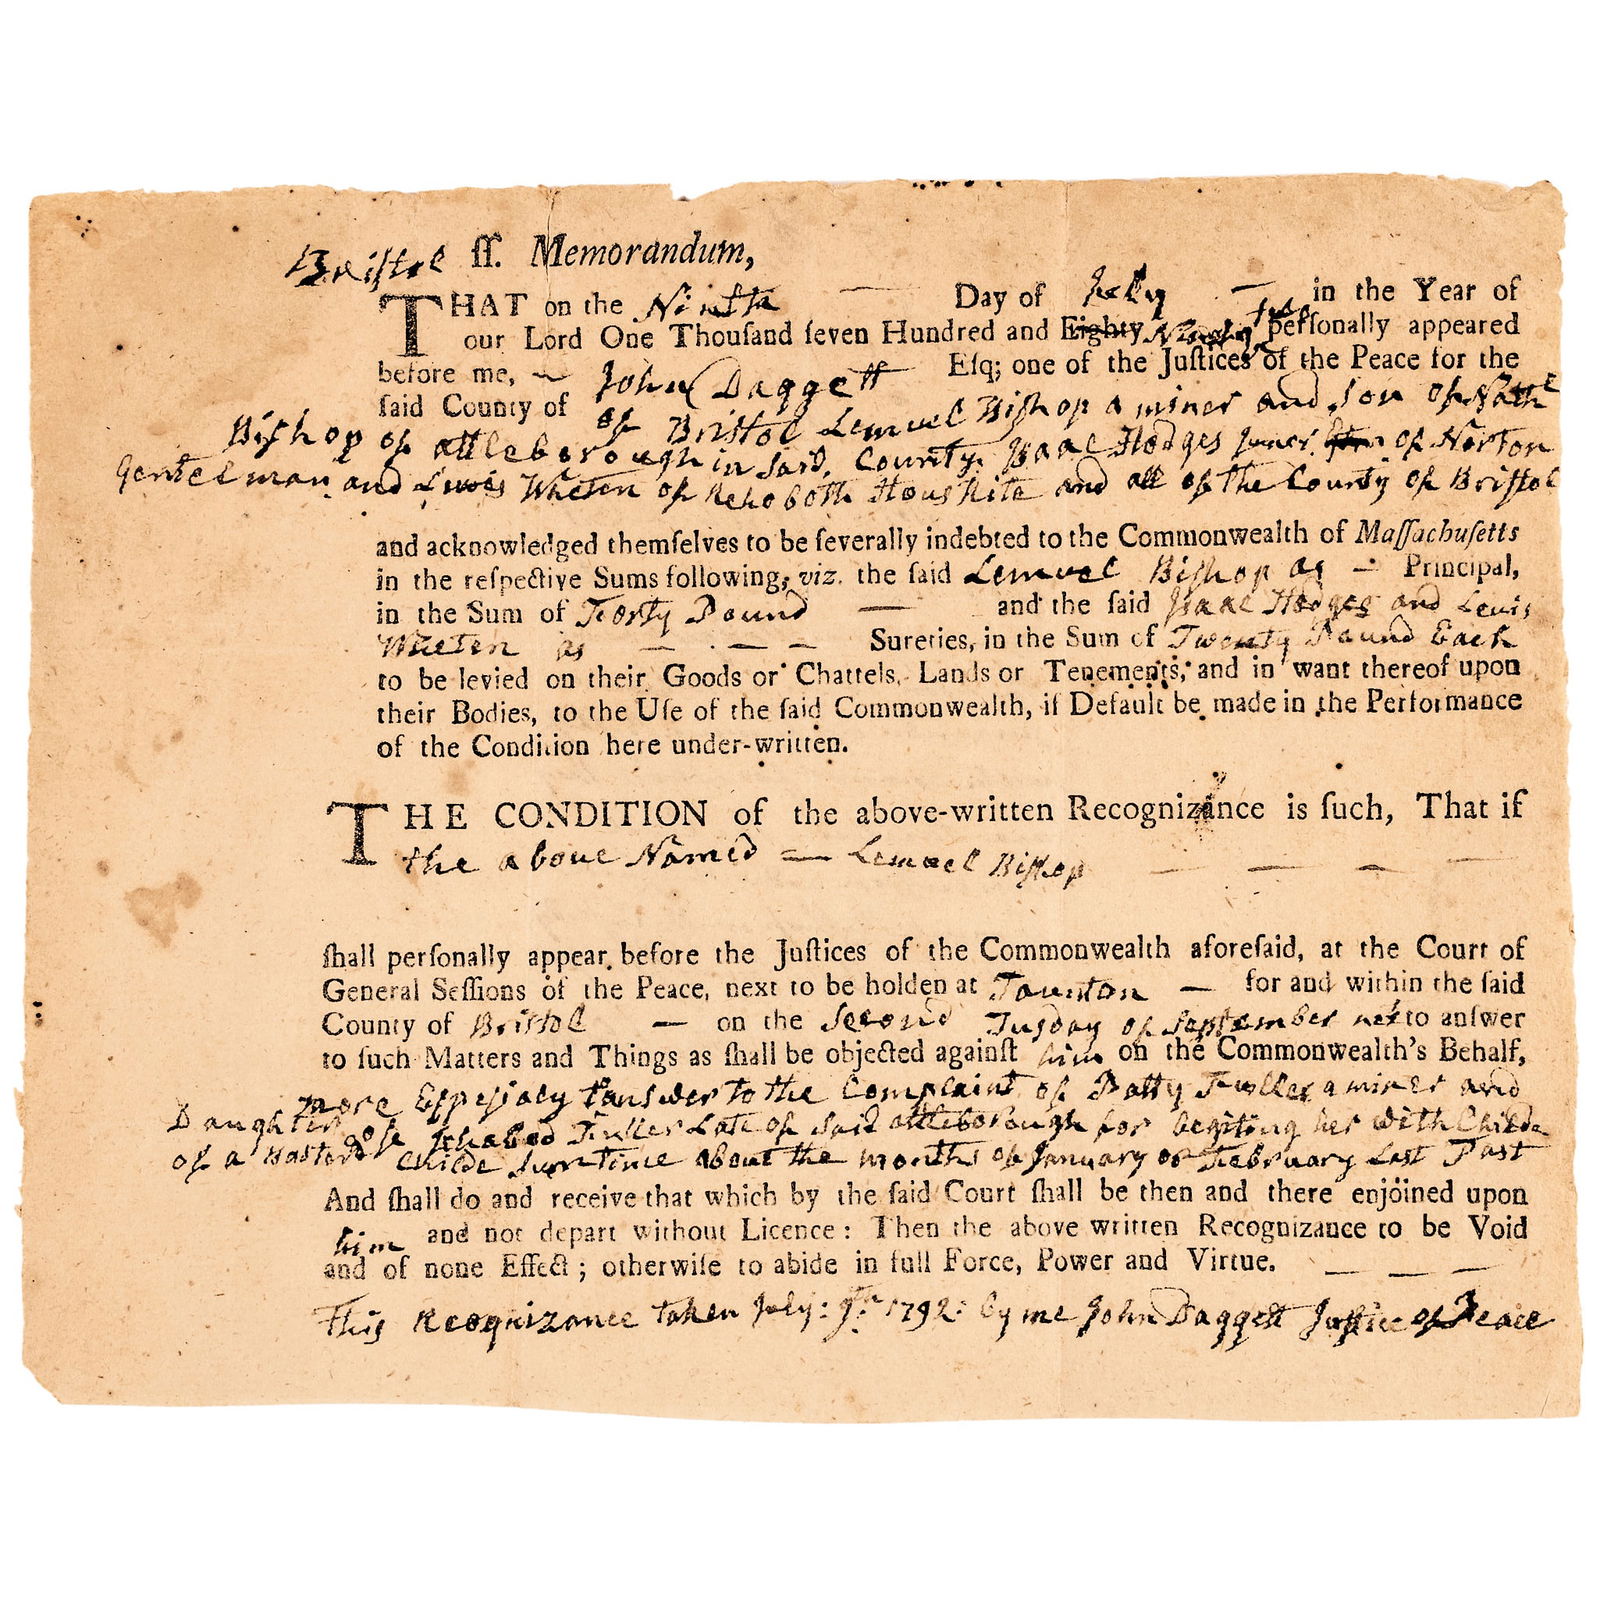 Bristol ſſ. Memorandum,
THAT on the Ninth — Day of July — in the Year of
our Lord One Thouſand ſeven Hundred and Eighty Ninety two perſonally appeared
before me, ~ John Daggett Eſq; one of the Juſtices of the Peace for the
ſaid County of of Bristol Lemuel Biſhop a miner and Son of Nathl
Biſhop of attleborough in Said County. Isaac Hodges juner of Norton
Gentelman and Lewis Wheten of Rehoboth Housrite and all of the County of Briſtol
and acknowledged themſelves to be ſeverally indebted to the Commonwealth of Maſſachuſetts
in the reſpective Sums following, viz. the ſaid Lemuel Biſhop as — Principal,
in the Sum of Forty Pound — and the ſaid Isaac Hodges and Lewis
Wheten as — · — — Sureties, in the Sum of Twenty Pound Each
to be levied on their Goods or Chattels, Lands or Tenements; and in want thereof upon
their Bodies, to the Uſe of the ſaid Commonwealth, if Default be made in the Performance
of the Condition here under-written.
THE CONDITION of the above-written Recognizance is ſuch, That if
the above Named — Lemuel Biſhop — — — —
ſhall perſonally appear before the Juſtices of the Commonwealth aforeſaid, at the Court of
General Seſſions of the Peace, next to be holden at Taunton — for and within the ſaid
County of Briſtol — on the Second Tusday of September next to anſwer
to ſuch Matters and Things as ſhall be objected againſt him on the Commonwealth's Behalf,
more Eſpeſialy tanswer to the Complaint of Patty Fuller a miner and
Daughter of Fuller Late of Said attleborough for begiting her with Childe
of a Basterd Childe Sumtime about the months of January or February Last Past
And ſhall do and receive that which by the ſaid Court ſhall be then and there enjoined upon
him and not depart without Licence: Then the above written Recognizance to be Void
and of none Effect; otherwiſe to abide in full Force, Power and Virtue. — — —
This Recognizance taken July: 9th 1792: by me John Daggett Juſtice of Peace